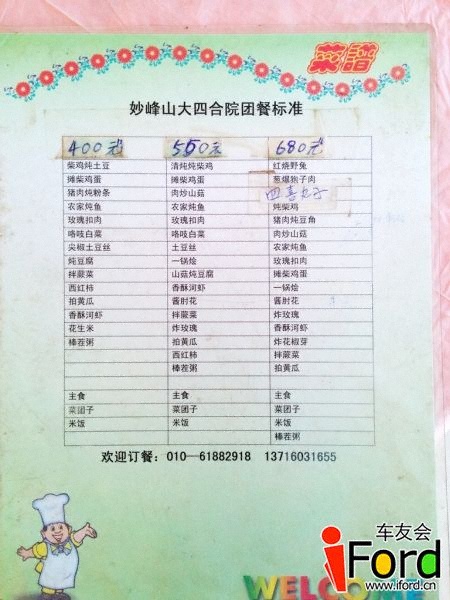 菜谱
妙峰山大四合院团餐标准
400元 550元 680元
柴鸡炖土豆 清炖炖柴鸡 红烧野兔
摊柴鸡蛋 摊柴鸡蛋 葱爆狍子肉
猪肉炖粉条 肉炒山菇 四喜丸子
农家炖鱼 农家炖鱼 炖柴鸡
玫瑰扣肉 玫瑰扣肉 猪肉炖豆角
咯吱白菜 咯吱白菜 肉炒山菇
尖椒土豆丝 土豆丝 农家炖鱼
炖豆腐 一锅烩 玫瑰扣肉
拌蕨菜 山菇炖豆腐 摊柴鸡蛋
西红柿 香酥河虾 一锅烩
拍黄瓜 酱肘花 酱肘花
香酥河虾 拌蕨菜 炸玫瑰
花生米 炸玫瑰 香酥河虾
棒茬粥 拍黄瓜 炸花椒芽
西红柿 拌蕨菜
棒茬粥 拍黄瓜
主食 主食 主食
菜团子 菜团子 菜团子
米饭 米饭 米饭
棒茬粥
欢迎订餐：010—61882918 13716031655
车友会
iFord
www.iford.cn
WELCOME